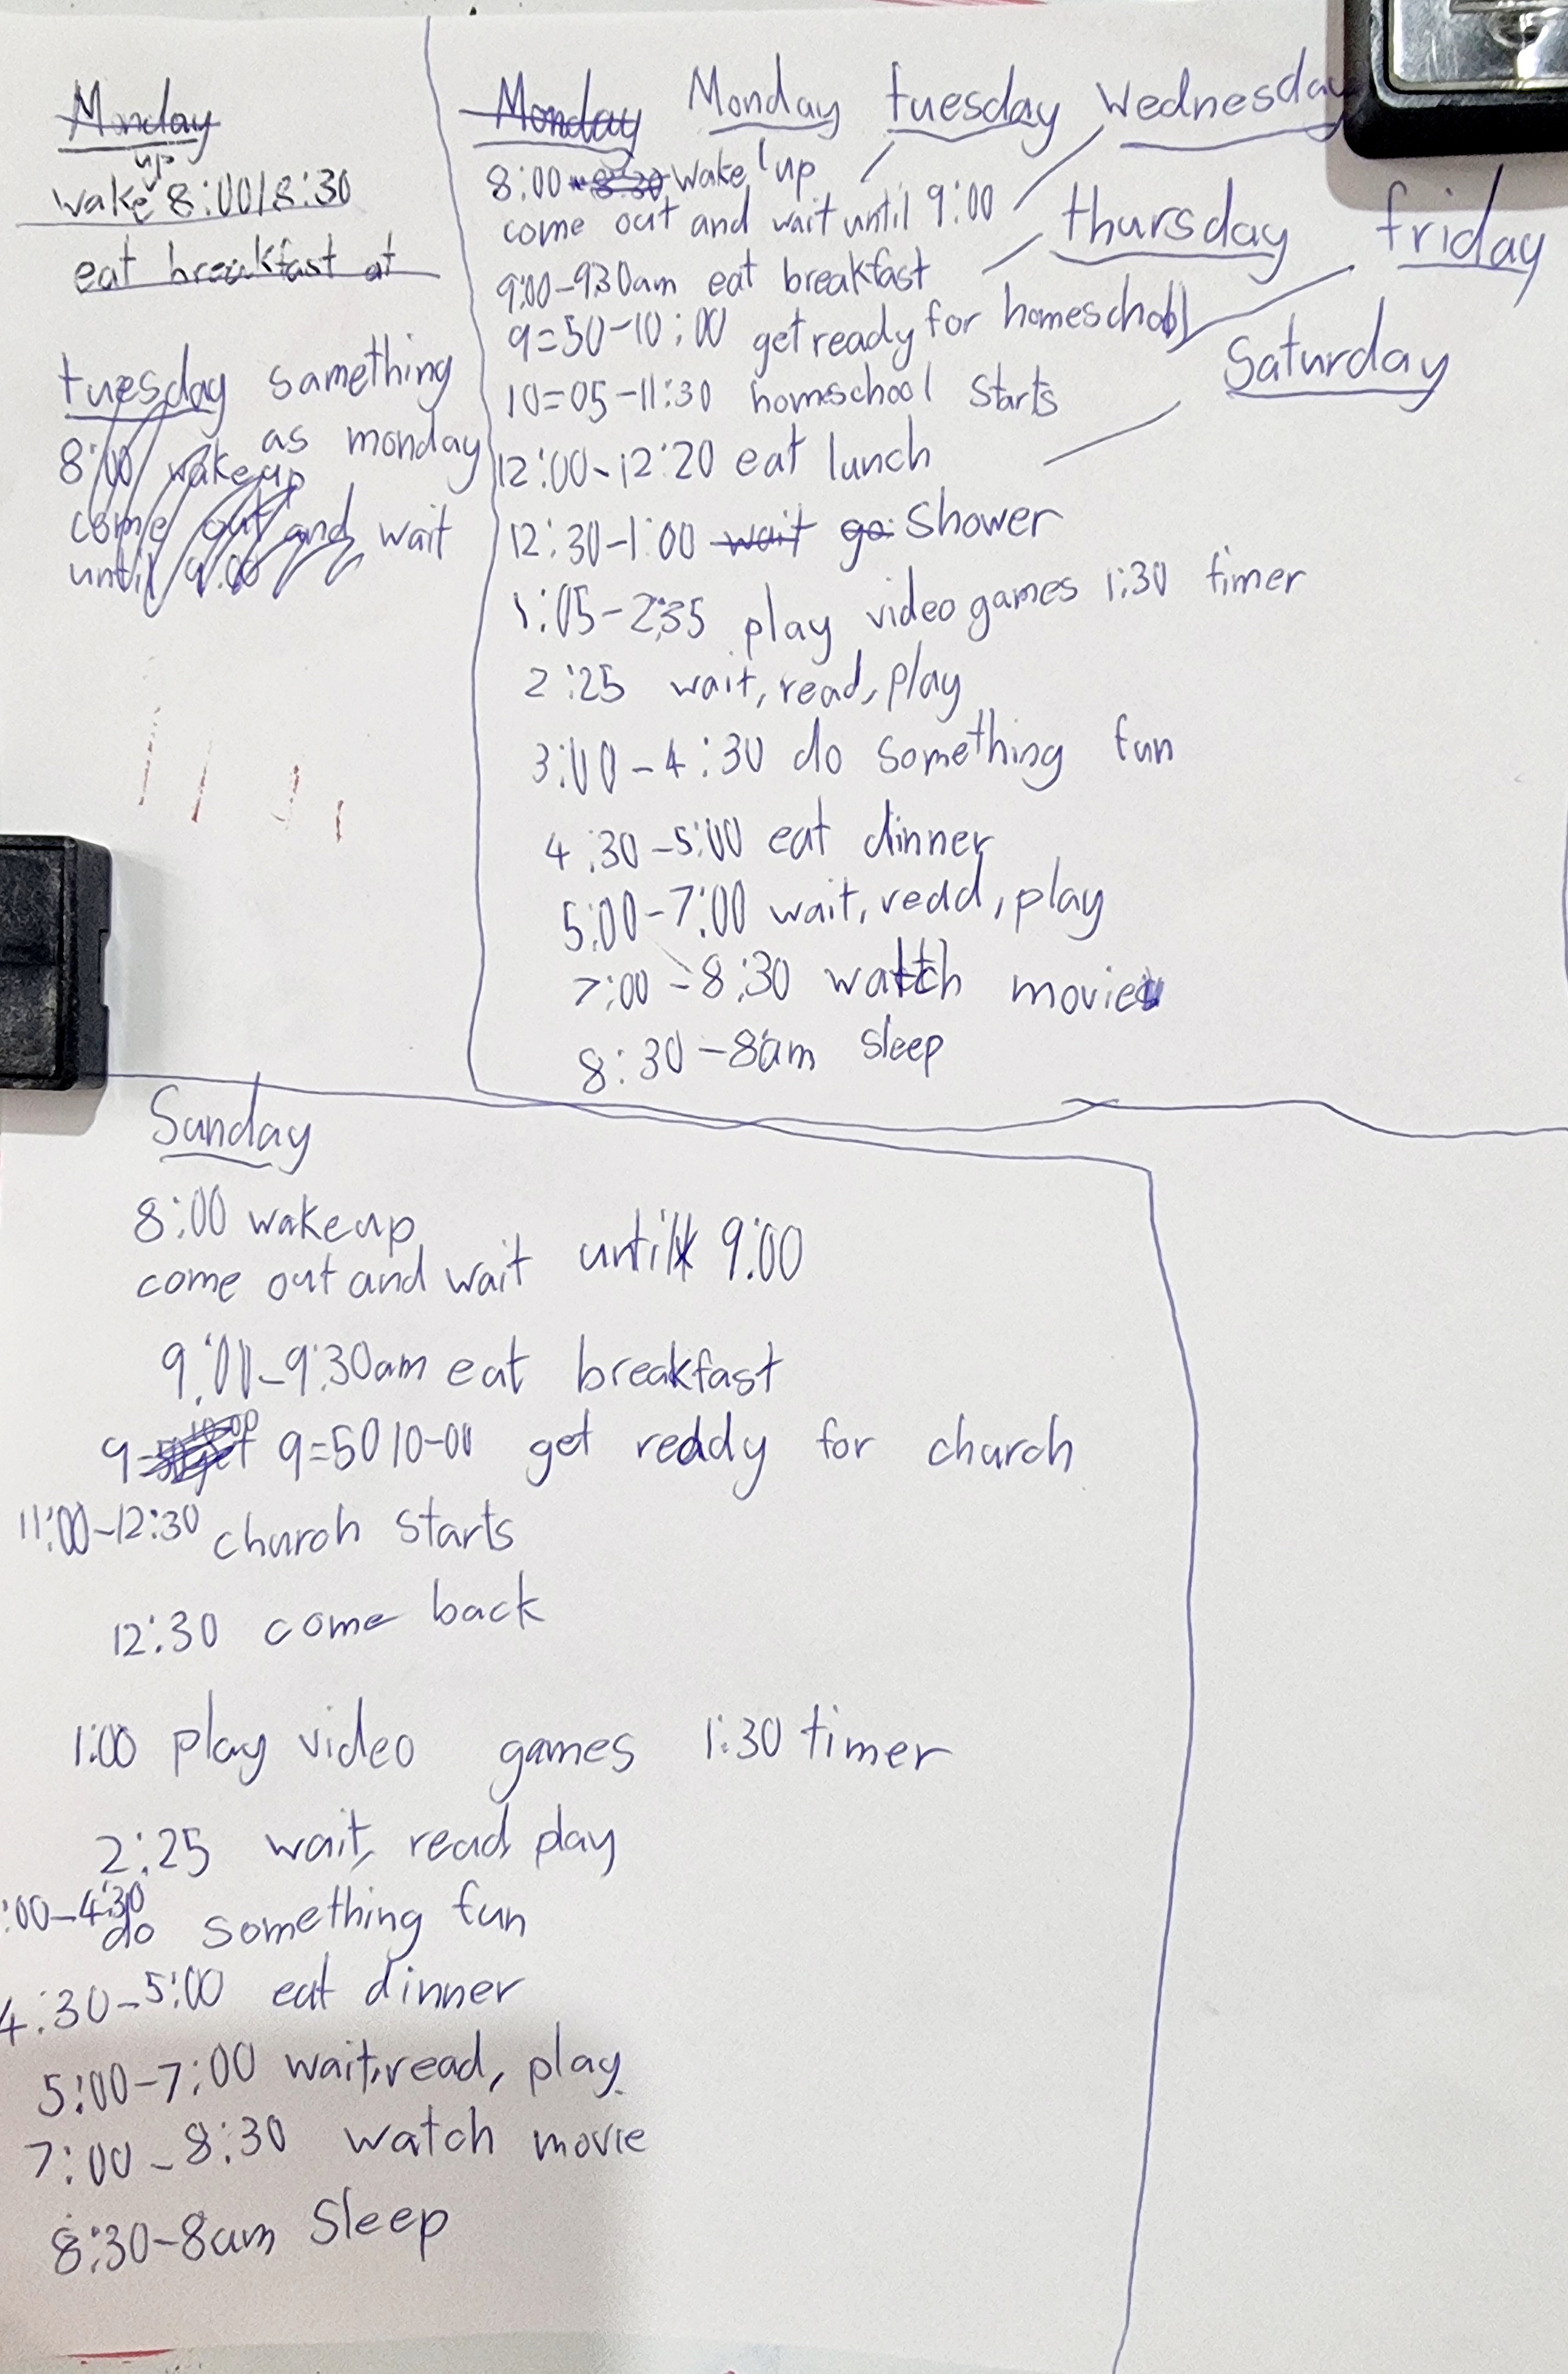 Monday
up
wake 8:00/8:30
eat breakfast at
tuesday samething
as monday
8:00 wake up
come out and wait
until 9:00
Monday Monday tuesday Wednesday
thursday friday
Saturday
8:00 - 8:30 wake up
come out and wait until 9:00
9:00-9:30am eat breakfast
9=50-10:00 get ready for homeschool
10=05-11:30 homschool starts
12:00-12:20 eat lunch
12:30-1:00 wait go shower
1:05-2:35 play video games 1:30 timer
2:25 wait, read, play
3:00-4:30 do something fun
4:30-5:00 eat dinner
5:00-7:00 wait, read, play
7:00-8:30 watch movie
8:30-8am sleep
Sunday
8:00 wake up
come out and wait until 9:00
9:00-9:30am eat breakfast
9=50 10-00 get ready for church
11:00-12:30 church starts
12:30 come back
1:00 play video games 1:30 timer
2:25 wait, read, play
:00-4:30
do something fun
4:30-5:00 eat dinner
5:00-7:00 wait, read, play
7:00-8:30 watch movie
8:30-8am Sleep